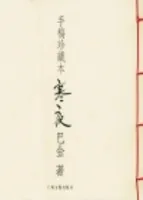 手稿珍藏本
寒夜
巴金 著